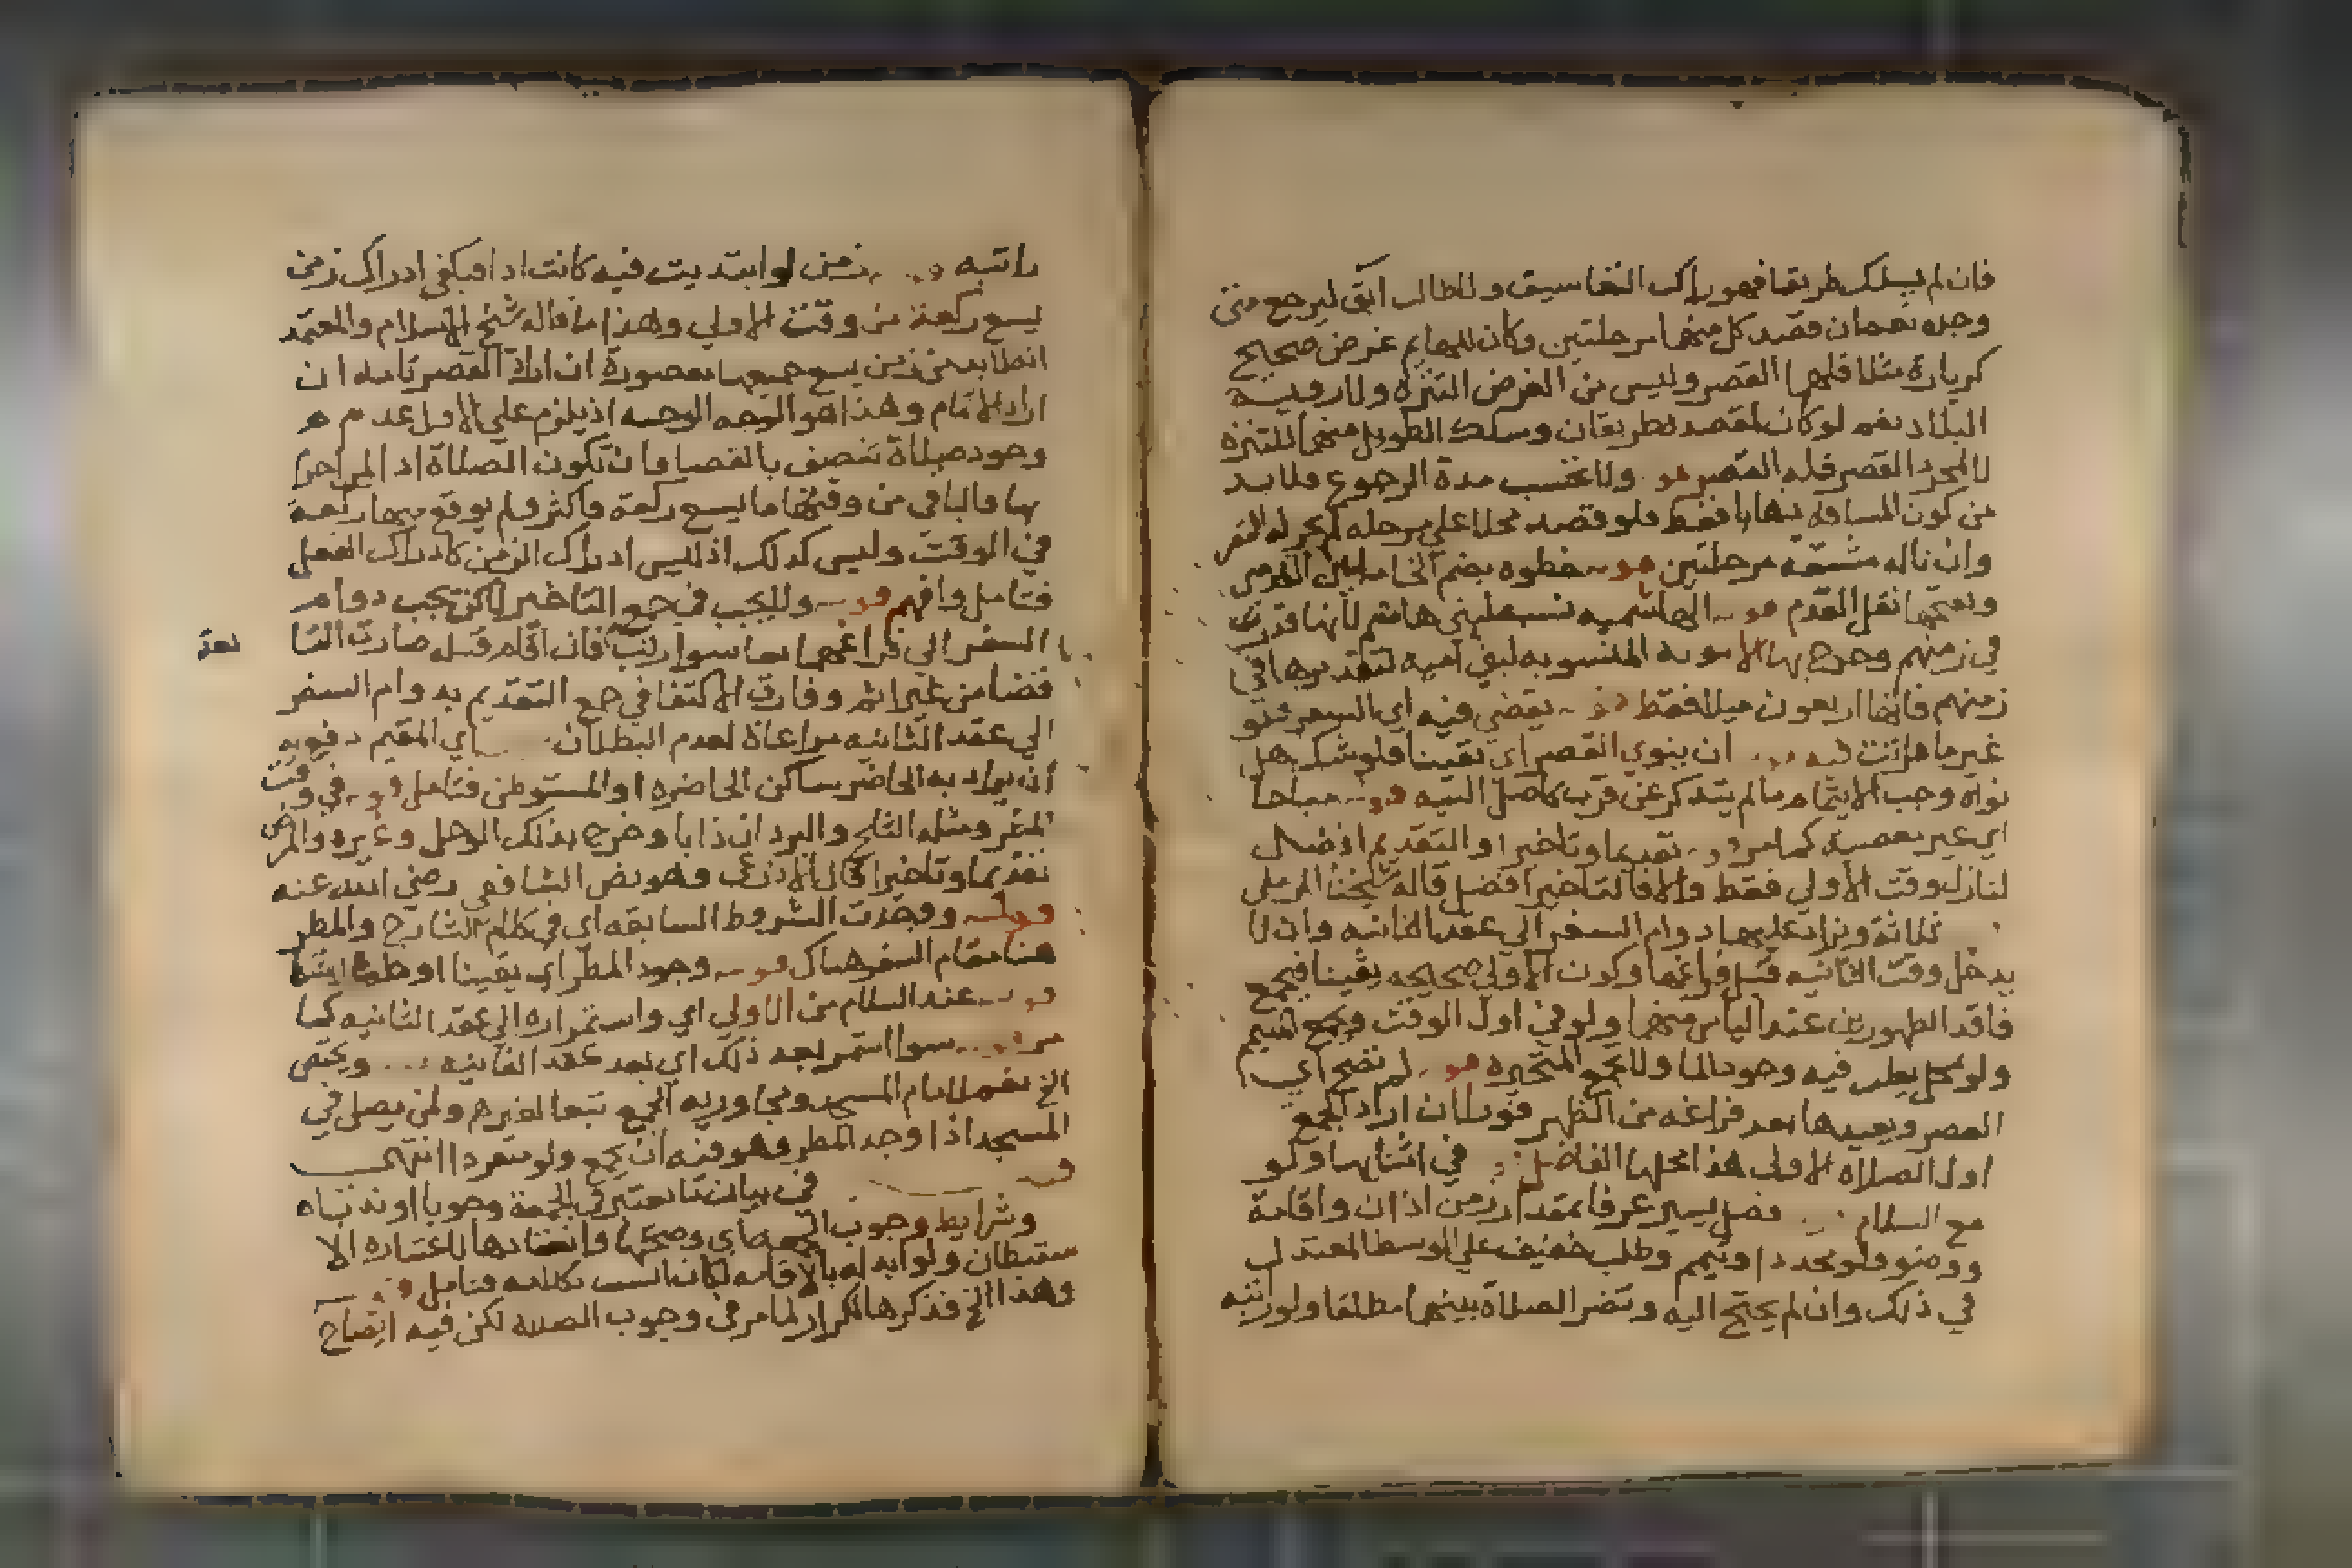 فان لم يسلك طريقا فهو راكب التعاسيف ولا طالب ابق ليرجع متى
وجده نعم ان قصد كل منهما مرحلتين وكان لهما غرض صحيح
كزيارة مثلا فلهما القصر وليس من الغرض التنزه ولا روية
البلاد نعم لو كان لمقصده طريقان وسلك الطويل منهما للتنزه
لا لمجرد القصر فله القصر قوله ولا تحسب مدة الرجوع فلا بد
من كون المسافة ذهابا فقط فلو قصد محلا على مرحلة لم يجز له القصر
وان ناله مشقة مرحلتين قوله خطوه بضم الخا ما بين القدمين
وبفتحها نقل القدم قوله الهاشمية نسبة لبني هاشم لانها قدرت
في زمنهم وخرج بها الاموية المنسوبة لبني امية لتقديرها في
زمنهم فانها اربعون ميلا فقط قوله يقضي فيه اي السفر
غير ما فاتت فيه قوله ان ينوي القصر اي يقينا فلو شك هل
نواه وجب الاتمام ما لم يتذكر عن قرب كاصل النية قوله مباحا
اي غير معصية كما مر قوله تقديما وتاخيرا والتقديم افضل
لنازل وقت الاولى فقط والا فالتاخير افضل قاله شيخنا الرملي
ثلاثة ويزاد عليها دوام السفر الي عقد الثانيه وان لا
يدخل وقت الثانيه قبل فراغها وكون الاولى صحيحه يقينا فيجمع
فاقد الطهورين عند الياس منهما ولو في اول الوقت ويجمع المتيمم
ولو بمحل يغلب فيه وجود الما ولا تجمع المتحيره قوله لم تصح اي
العصر ويعيدها بعد فراغه من الظهر فورا ان اراد الجمع
اول الصلاه الاولى هذا محلها الفاضل في اثنايها ولو
مع السلام فصل يسير عرفا بمقدار زمن اذان واقامة
ووضو ولو مجددا وتيمم وطلب خفيف علي الوسط المعتدل
في ذلك وان لم يحتج اليه وتضر الصلاة بينهما مطلقا ولو راتبه
راتبه زمن لو ابتديت فيه كانت ادا فيكفي ادراك زمن
يسع ركعة من وقت الاولي وهذا ما قاله شيخ الاسلام والمعتمد
انه لا بد من زمن يسع جميعها مقصورة ان اراد القصر وتامة ان
اراد الاتمام وهذا هو الوجه الوجيه اذ يلزم علي الاول عدم
وجود صلاة تتصف بالقضا وان تكون الصلاة ادا لمن احرم
بها والباقي من وقتها ما يسع ركعة فاكثر ولم يوقع منها ركعة
في الوقت وليس كذلك اذ ليس ادراك الزمن كادراك الفعل
فتامل وافهم قوله ولا يجب في جمع التاخير لكن يجب دوام
السفر الي فراغهما معا سوا رتب فان اقام قبله صارت التا
قضا من غير اثم وفارق الاكتفا في جمع التقديم بدوام السفر
الي عقد الثانيه مراعاة لعدم البطلان اي المقيم دفع به
ان يراد به الحاضر ساكن الحاضره او المستوطن فتامل قوله في وقت
المطر ومثله الثلج والبرد ان ذابا وخرج بذلك الوحل وغيره والمرض
تقديما وتاخيرا قال الاذرعي وهو نص الشافعي رضي الله عنه
قوله ووجدت الشروط السابقه اي في كلام الشارح والمطر
هنا مقام السفر هناك قوله وجود المطر اي يقينا او ظنا
قوله عند السلام من الاولي اي واستمراره الي عقد الثانيه كما
مر قوله سوا استمر بعد ذلك اي بعد عقد الثانيه ويختص
الخ نعم لامام المسجد ومجاوريه الجمع تبعا لغيرهم ولمن يصلي في
المسجد اذا وجد المطر وهو فيه ان يجمع ولو منفردا انتهي
في بيان ما تعتبر في الجمعة وجوبا او ندبا
وشرايط وجوب الجمعة اي وصحتها وانعقادها باعتباره الا
ستيطان ولو ابدله بالاقامه لكان انسب بكلامه فتامل
وهذا الخ فذكرها تكرار لما مر في وجوب الصلاه لكن فيه ايضاح